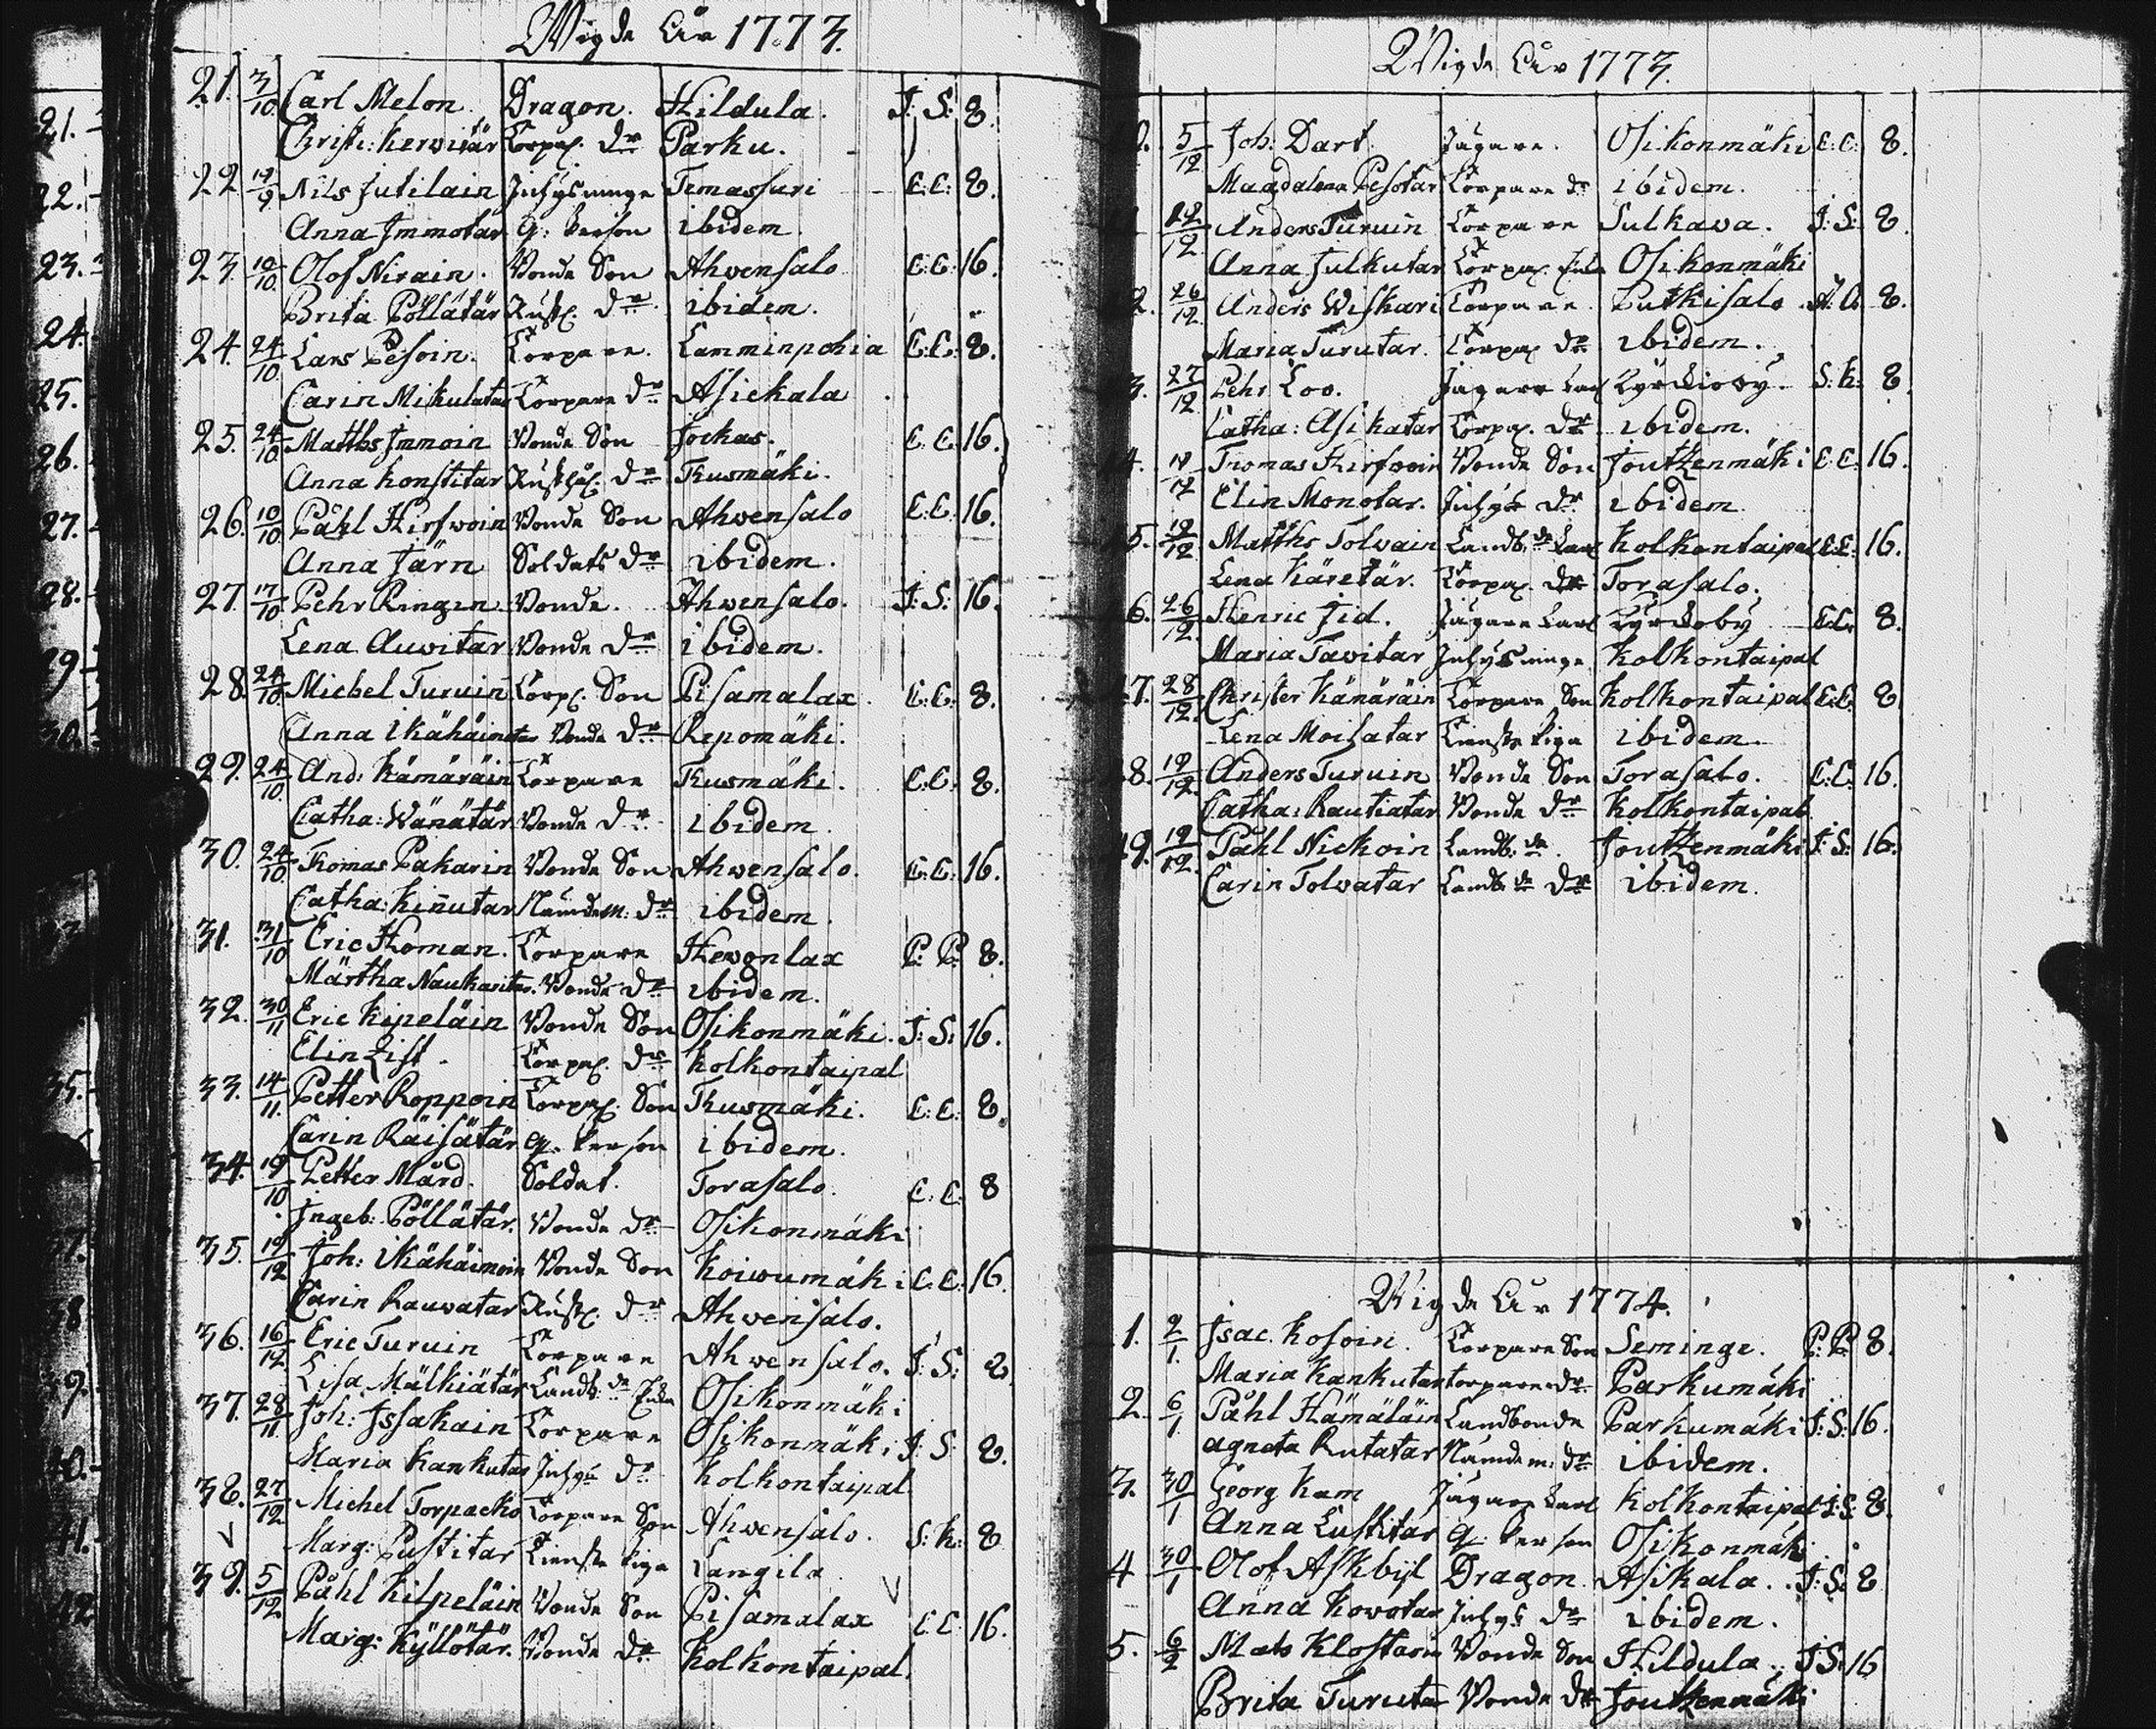 Wigde Åhr 1773.
21. 3/10 Carl Melon Dragon. Hildula. J: S: 8.
Christ: Kerwitär Torpar dr Parku.
22 19/9 Nils Jutilain Inhysinge Temassuri C: C: 8.
Anna Immotar G: Person ibidem.
23 10/10 Olof Nirain. Bonde Son Ahwensalo C: C: 16.
Brita Pöllätär Rust. dr ibidem.
24. 24/10 Lars Pesoin. Torpare. Lamminpohia C: C: 8.
Carin Mikulatar Torpare dr Asickala
25. 24/10 Matths Immoin Bonde Son Jockas. C: C: 16.
Anna Konstitar Rusthål. dr Kusmäki.
26. 10/10 Påhl Hirfwoin Bonde Son Ahwensalo C: C: 16.
Anna Järn Soldats dr ibidem.
27. 17/10 Pehr Ringin Bonde. Ahwensalo. J: S: 16.
Lena Auwitar Bonde dr ibidem.
28. 24/10 Michel Turuin Torp. Son Pisamalax C: C: 8.
Anna Ikähäinotar Bonde dr Repomäki.
29. 24/10 And: Kämäräin Torpare Kusmäki. C: C: 8.
Catha: Wänätär Bonde dr ibidem.
30. 24/10 Thomas Pakarin Bonde Son Ahwensalo. C: C: 16.
Catha: Kiñutar Nämdem: dr ibidem.
31. 31/10 Eric Homan. Torpare Hewonlax P: P: 8.
Märtha Naukaritar. Bonde dr ibidem.
32. 30/11 Eric Kipeläin Bonde Son Osikonmäki. J: S: 16.
Elin List. Torpar dr Kolkontaipal
33. 14/11 Petter Roppoin Torpar Son Kusmäki. C: C: 8.
Carin Räisätär G. Person ibidem.
34. 19/10 Petter Mård. Soldat. Torasalo. C: C: 8
Ingeb: Pöllätär. Bonde dr Osikonmäki
35. 19/12 Joh: Ikähäimoin Bonde Son Koiwumäki C: C: 16
Carin Rauwatar Rust. dr Ahwensalo.
36. 16/12 Eric Turuin Torpare Ahwensalo. J: S: 8
Lisa Mälkiätär Landb:de Enka Osikonmäki
37. 28/11 Joh: Issakain Torpare Osikonmäki J: S: 8.
Maria Kankutar Inhys dr Kolkontaipal
38. 27/12 Michel Torpacko Torpare Son Ahwensalo. S: K: 8
Marg: Pustitar Tienste Piga Langila
39. 5/12 Påhl Kilpeläin Bonde Son Pisamalax C: C: 16.
Marg: Kyllötär. Bonde dr Kolkontaipal.
Wigde Åhr 1773.
0. 5/12 Joh: Dart Jägare. Osikonmäki C: C: 8.
Magdalena Pesotar Torpare dr ibidem.
12 Anders Turuin Torpare Sulkawa. J: S: 8.
Anna Julkutar Torpar Enka Osikonmäki
2. 26/12 Anders Wiskari Torpare. Putkisalo 8.
Maria Turutar. Torpar dr ibidem.
3. 27/12 Pehr Loo. Jägare Karl Kyrckioby. S: K: 8.
Catha: Asikatar Torpar dr ibidem.
4. Thomas Hirfwoin Bonde Son Joutzenmäki C: C: 16.
Elin Monotar. Inhys dr ibidem
5. 19/12 Matths Tolwain Landb:de Karl Kolkontaipal C: C: 16.
Lena Käretär. Torpar dr Torasalo.
6. 26/12 Henric Jid. Jägare Karl Kyrckoby C: C: 8.
Maria Tawitar Inhysinge Kolkontaipal
47. 28/12 Christer Kämäräin Torpare Son Kolkontaipal C: C: 8
Lena Moisatar Tienste Piga ibidem.
48. 19/12 Anders Turuin Bonde Son Torasalo. C: C: 16.
Catha: Rautiatar Bonde dr Kolkontaipal
49. 19/12 Påhl Nickoin Landb:de Joutzenmäki J: S: 16.
Carin Tolwatar Landb:de dr ibidem.
Wigde Åhr 1774.
1. 2/1 Isac Kosoin. Torpare Son Seminge. P: P: 8.
Maria Kankutar torpare dr Parkumäki
2 6/1 Påhl Hämäläin Landbonde Parkumäki J: S: 16.
Agneta Rutatar Nämdem: dr ibidem.
3. 30/1 Georg Kam Jägare Karl Kolkontaipal J: S: 8.
Anna Lustitar G: Person Osikonmäki
4 30/1 Olof Askbyl Dragon. Asikala. J: S: 8
Anna Kowotar Inhys dr ibidem.
5. 6/2 Mats Klostarin Bonde Son Hildula. J: S: 16
Brita Turutar Bonde dr Joutzenmäki